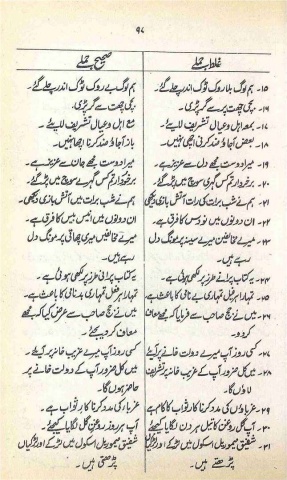 ۹۸
غلط جملے
صحیح جملے
۱۵۔ ہم لوگ بلا روک ٹوک اندر چلے گئے۔
ہم لوگ بے روک ٹوک اندر چلے گئے۔
۱۶۔ بچی چھت پر سے گر پڑی۔
بچی چھت سے گر پڑی۔
۱۷۔ بمعہ اہل و عیال تشریف لائیے۔
مع اہل و عیال تشریف لائیے۔
۱۸۔ بعض آجاؤ ضد کرنا اچھا نہیں۔
باز آجاؤ ضد کرنا اچھا نہیں۔
۱۹۔ میرا دوست مجھے دل سے عزیز ہے۔
میرا دوست مجھے جان سے عزیز ہے۔
۲۰۔ برخوردار تم کس گہری سوچ میں پڑ گئے۔
برخوردار تم کس گہرے سوچ میں پڑ گئے۔
۲۱۔ ہم نے شب برات میں آتش بازی دیکھی
ہم نے شب برات کی آتش بازی دیکھی
۲۲۔ ان دونوں میں نو دس کا فرق ہے۔
ان دونوں میں انیس بیس کا فرق ہے۔
۲۳۔ میرے مخالفین میرے سینہ پر مونگ دل
رہے ہیں۔
میرے مخالفین میری چھاتی پر مونگ دل
رہے ہیں۔
۲۴۔ یہ کتاب پرانے طرز پر لکھی ہوئی ہے۔
یہ کتاب پرانی طرز پر لکھی ہوئی ہے۔
۲۵۔ تمہارا ہر فعل تمہاری بدنامی کا باعث ہے۔
تمہارا ہر فعل تمہاری بدنامی کا باعث ہے۔
۲۶۔ میں نے جج صاحب سے فرمایا کہ مجھے معاف
کر دو۔
میں نے جج صاحب سے عرض کیا کہ مجھے
معاف کر دیجئے۔
۲۷۔ کسی روز آپ میرے دولت خانے پر آئیے۔
کسی روز آپ میرے غریب خانے پر آئیے۔
۲۸۔ میں کل ضرور آپ کے غریب خانہ پر تشریف
لاؤں گا۔
میں کل ضرور آپ کے دولت خانے پر
حاضر ہوں گا۔
۲۹۔ غرباؤں کی مدد کرنا کار ثواب کا کام ہے
غرباء کی مدد کرنا کار ثواب ہے۔
۳۰۔ آپ روغن کا تیل ہر دن لگایا کیجئے
آپ ہر روز روغن گل لگایا کیجئے۔
۳۱۔ شفیق میموریل اسکول میں لڑکے اور لڑکیاں
پڑھتے ہیں۔
شفیق میموریل اسکول میں لڑکے اور لڑکیاں
پڑھتی ہیں۔